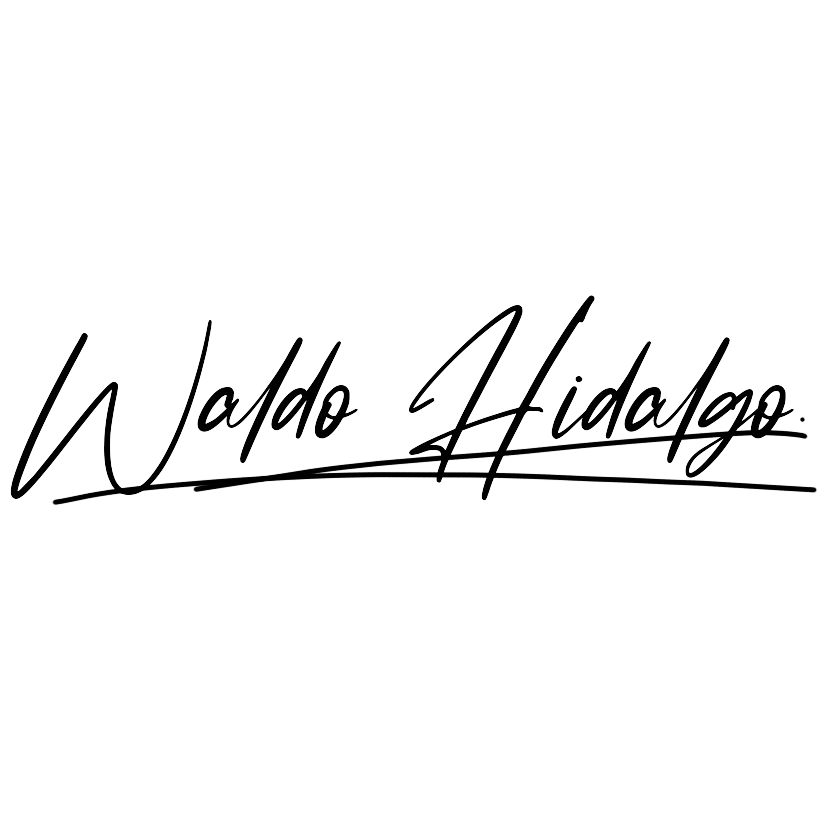 Waldo Hidalgo.